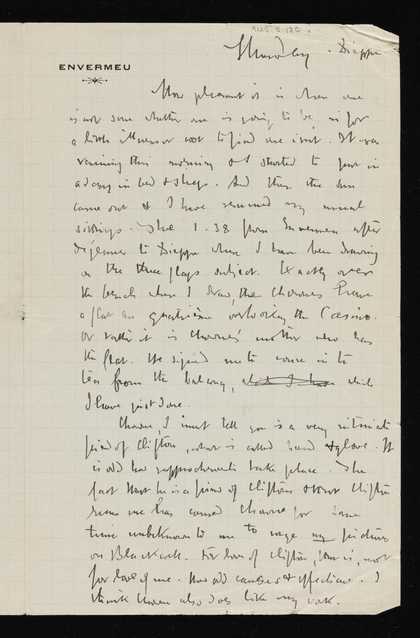 Thursday. Dieppe
ENVERMEU
How pleasant it is when one
is not sure whether one is going to be in for
a little illness or not to find one isn't. It was
raining this morning & I started to put in
a day in bed & sleep. And then the sun
came out & I have resumed my usual
sittings. The 1.38 from Envermeu after
déjeuner to Dieppe where I have been drawing
on the three flags subject. Exactly over
the bench where I draw, the Chownes have
a flat au quatrième overlooking the Casino.
Or rather it is Chowne's mother who has
the flat. He signed me to come in to
tea from the balcony, which
I have just done.
Chowne, I must tell you is a very intimate
friend of Clifton, what is called hand & glove. It
is odd how rapprochements take place. The
fact that he is a friend of Clifton & that Clifton
 me has caused Chowne for some
time unbeknown to me to my pictures
on Blackwell. For love of Clifton, that is, not
for love of me. How odd causes & effects are. I
think Chowne also does like my work.